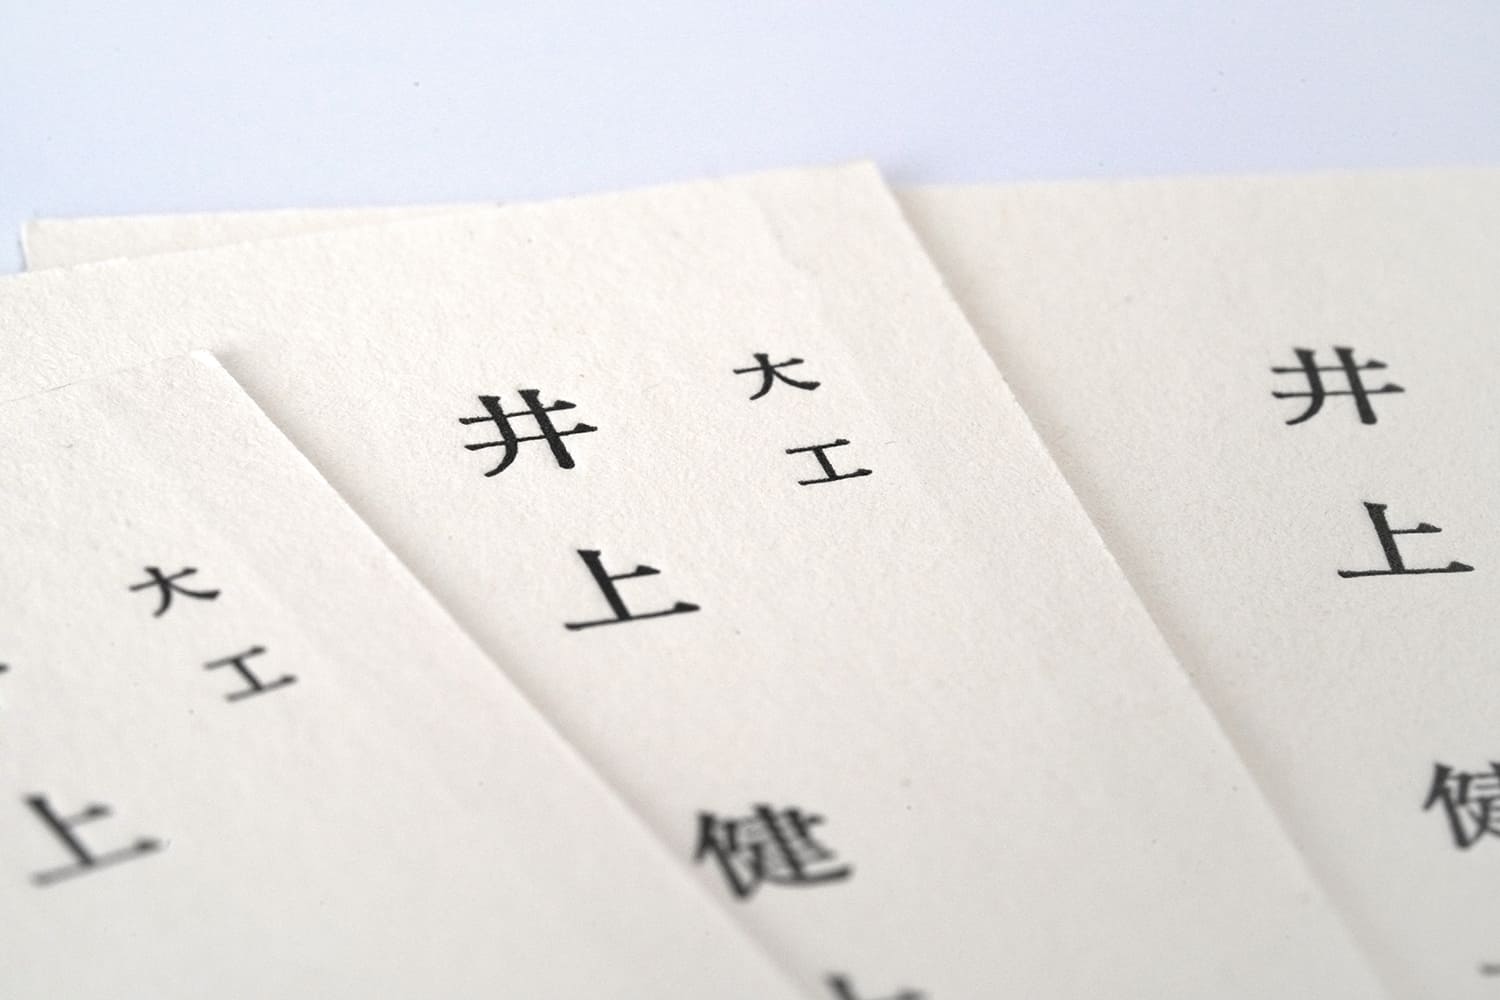 大工
井上健
大工
上
井上